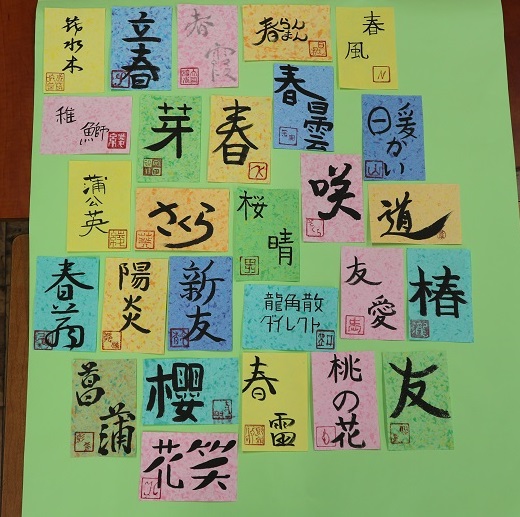 花水木
立春
春霞
春らんまん
春風
稚鰤
芽
春
春曇
暖かい
蒲公英
さくら
桜晴
咲
道
春
陽炎
新友
龍角散
ダイレクト
友愛
椿
菖蒲
櫻
春雷
桃の花
友
花笑